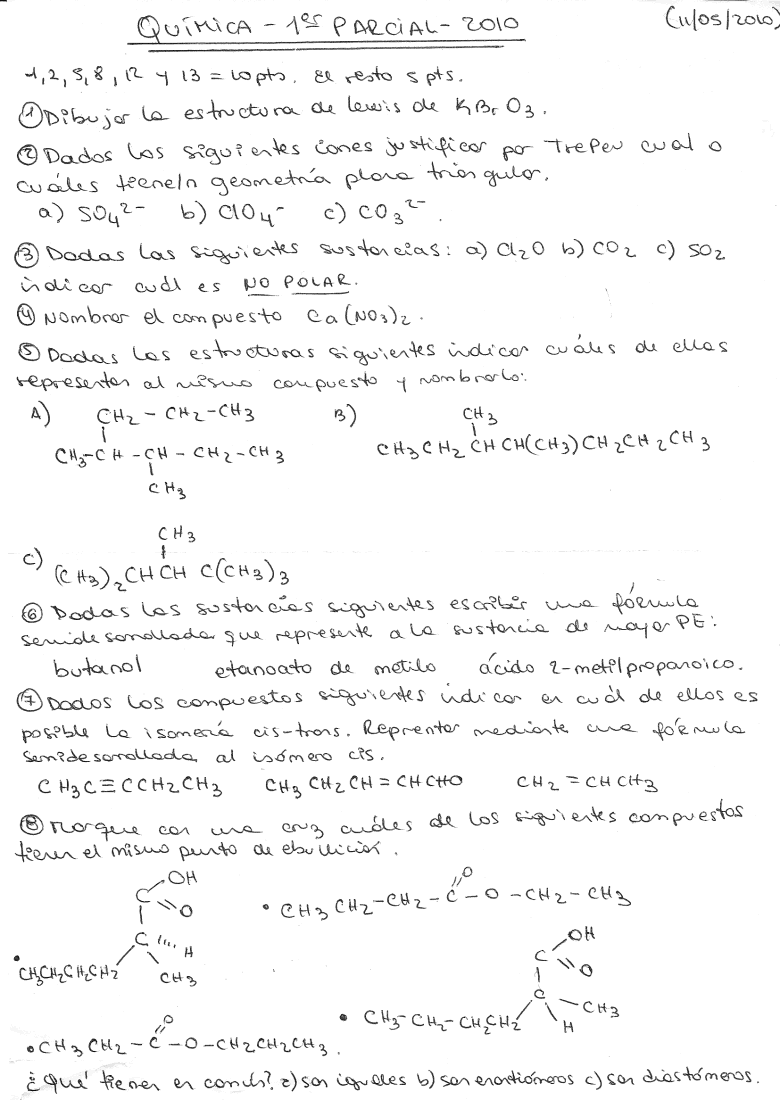 QUÍMICA - 1er PARCIAL - 2010 (11/05/2010)
1, 2, 5, 8, 12 y 13 = 10 pts. El resto 5 pts.
① Dibujar la estructura de lewis de KBrO3.
② Dados los siguientes iones justificar por TrePeV cual o
cuáles tiene/n geometría plana triangular.
a) SO4 2- b) ClO4 - c) CO3 2-.
③ Dadas las siguientes sustancias: a) Cl2O b) CO2 c) SO2
indicar cuál es NO POLAR.
④ Nombrar el compuesto Ca(NO3)2.
⑤ Dadas las estructuras siguientes indicar cuáles de ellas
representan al mismo compuesto y nombrarlo:
A) CH2 - CH2 - CH3 B) CH3
CH3-CH - CH - CH2 - CH3 CH3CH2CHCH(CH3)CH2CH2CH3
CH3
CH3
C) (CH3)2CHCH C(CH3)3
⑥ Dadas las sustancias siguientes escribir una fórmula
semidesarrollada que represente a la sustancia de mayor PE:
butanol etanoato de metilo ácido 2-metilpropanoico.
⑦ Dados los compuestos siguientes indicar en cuál de ellos es
posible la isomería cis-trans. Reprentar mediante una fórmula
semidesarrollada al isómero cis.
CH3C≡CCH2CH3 CH3CH2CH=CHCHO CH2=CHCH3
⑧ Marque con una cruz cuáles de los siguientes compuestos
tienen el mismo punto de ebullición.
C OH O
• CH3CH2-CH2-C-O-CH2-CH3 O
C H
• CH3CH2CH2CH2 CH3
C OH O
• CH3-CH2-CH2CH2 C CH3 H
• CH3CH2-C-O-CH2CH2CH3. O
¿Qué tienen en común? a) son iguales b) son enantiómeros c) son diastómeros.